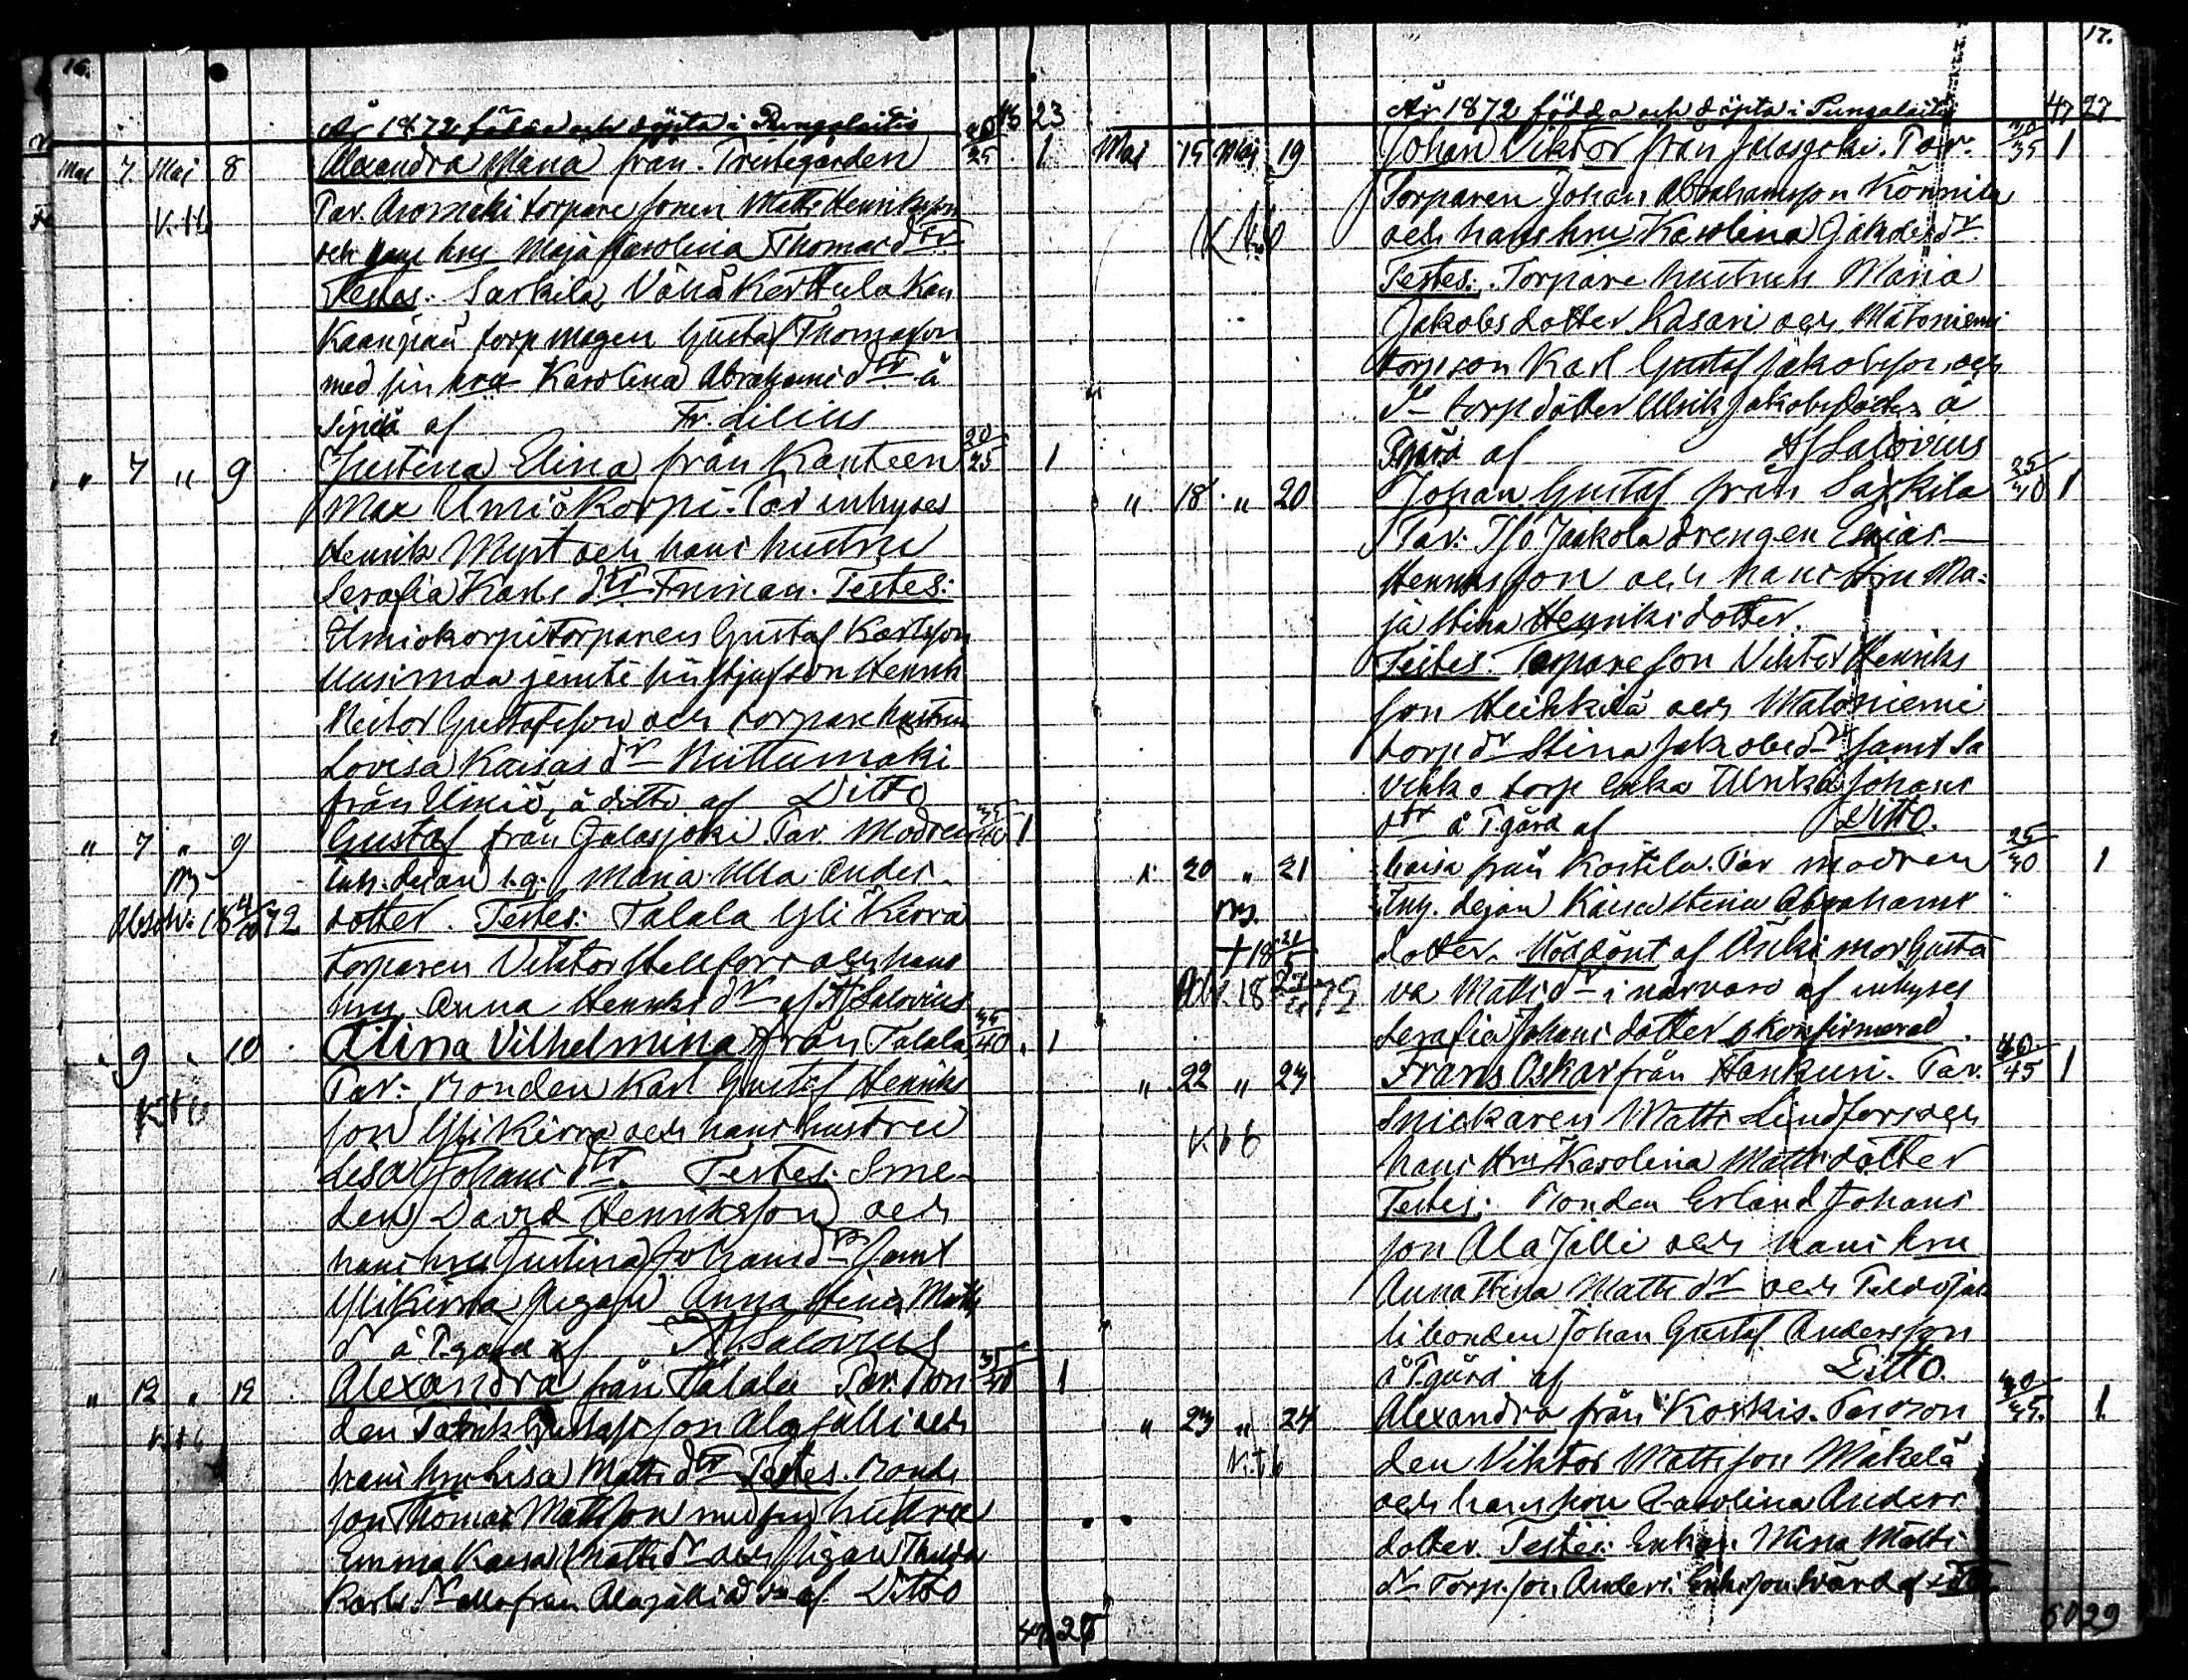 16.
År 1872 födda och döpta i Pungalaitio 23
Maj 7. Maj 8 Alexandra Maria från Prustegården 20/25 1
K.t.b. Par. Aromäki torpare sonen Matts Henriksson
och hans hru Maja Karolina Thomasdtr
Testes: Sarkila, Vähä Kerttula Kan
Kaanpää torp magen Gustaf Thomasson
med sin hru Karolina Abrahamsdtr å
af Fr. Lilius
" 7 " 9 Justina Elina från Kanteen 20/25 1
maa Umiökorpi. Par inhyses
Henrik Myrt och hans hustru
Serafia Karls dtr. Testes:
Umiokorpi torparen Gustaf Karlsson
Uusimaa jemte Henrik
Neitor Gustafsson och torpare hustrun
Lovisa Kaisas dr Niittumäki
från Umiö, å ditto af Ditto
" 7 " 9 Gustaf från Jalasjoki. Par. Modren 35/40 1
inh. lejan l.q. Maria Ulla Anders
Absolv: 18 4/10 72 dotter. Testes: Talala Yli Kerra
torparen Viktor Hellfors och hans
hru Anna Henriks dr af A Salovius
" 9 " 10 Alina Vilhelmina från Talala 35/40 1
Par: Bonden Karl Gustaf Henriks
K.t.b. son Yli Kerra och hans hustru
Lisa Johans dtr. Testes: Sme-
den David Henriksson och
hans hru Justina Johansdr samt
Ylikerra pigan Anna Stina Matts
dr å P.gård af A Salovius
" 12 " 12 Alexandra från Talala Par. Bon 35/40 1
K.t.b. den Patrik Gustafsson Alajalli och
hans hru Lisa Matts dtr Testes. Bonde
son Thomas Mattsson med sin hustru
Emma Kaisa Mattsdr och pigan Thilda
Karls dr alla från Alajälli af Ditto
47 27
17.
År 1872 födda och döpta i Pungalaitio 47 27
Maj 15 Maj 19 Johan Viktor från Jalasjoki. Par. 30/35 1
Torparen Johan Abrahamsson Könnilä
K.t.b. och hans hru Karolina Jakobsdr.
Testes: Torpare hustrun Maria
Jakobsdotter Kasari och Matoniemi
torp son Karl Gustaf Jakobsson och
So torp dotter Ulrik Jakobsdotter å
P.gård af A Salovius
" 18 " 20 Johan Gustaf från Sarkila 25/30 1
Par: Iso Jaakola drengen Enias
Henriksson och hans Hru Ma-
ja Stina Henriksdotter.
Testes: Torpare son Viktor Henriks
son Heikkilä och Matoniemi
torp dr Stina Jakobs dr samt Sa
torp enka Ulrika Johans
dtr å P.gård af Ditto.
" 20 " 21 Kaisa från Kostila. Par modren 25/30 1
inh. lejan Kaisa Stina Abrahams
+ 18 21/5 dotter. Nöddöpt af Gusta
Abs. 18 72 va Matts dr i närvaro af inhyses
Serafia Johans dotter okonfirmerad.
" 22 " 23 Frans Oskar från Hankuri. Par. 40/45 1
Snickaren Matts Lindfors och
K.t.b. hans Hru Karolina Mattsdotter
Testes: Bonden Erland Johans
son Ala Jälli och hans hru
Anna Stina Matts dr och
bonden Johan Gustaf Andersson
å P.gård af Ditto.
" 23 " 24 Alexandra från Korkis. Par Bon 1
den Viktor Mattsson Mäkelä
K.t.b. och hans hru Karolina Anders
dotter. Testes: Enkan Mina Matts
dr Torp. son Anders Eriksson Svärd af Ditto
50 29